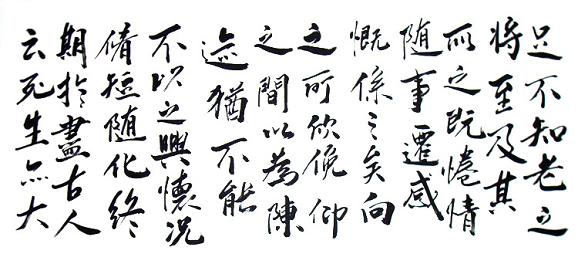 足不知老之
将至及其
所之既惓情
随事遷感
慨係之矣向
之可欣俛仰
之間以為陳
迹猶不能
不以之興懷况
脩短随化終
期於盡古人
云死生亦大